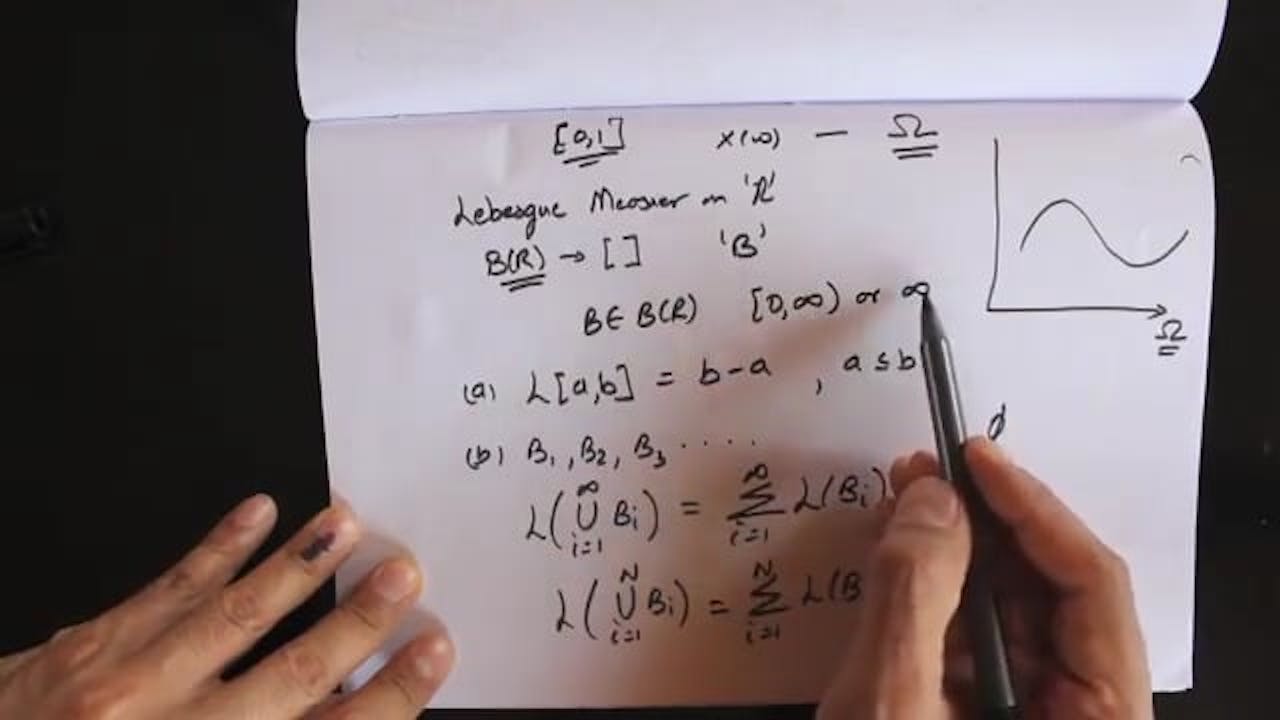 [0,1] X(ω) — Ω
Lebesgue Measuer on 'R'
B(R) → [ ] 'B'
B ∈ B(R) [0,∞) or ∞
Ω
(a) λ[a,b] = b-a , a ≤ b
ϕ
(b) B₁, B₂, B₃ ....
λ(∞∪i=1 Bi) = ∞Σi=1 λ(Bi)
λ(N∪i=1 Bi) = NΣi=1 λ(B